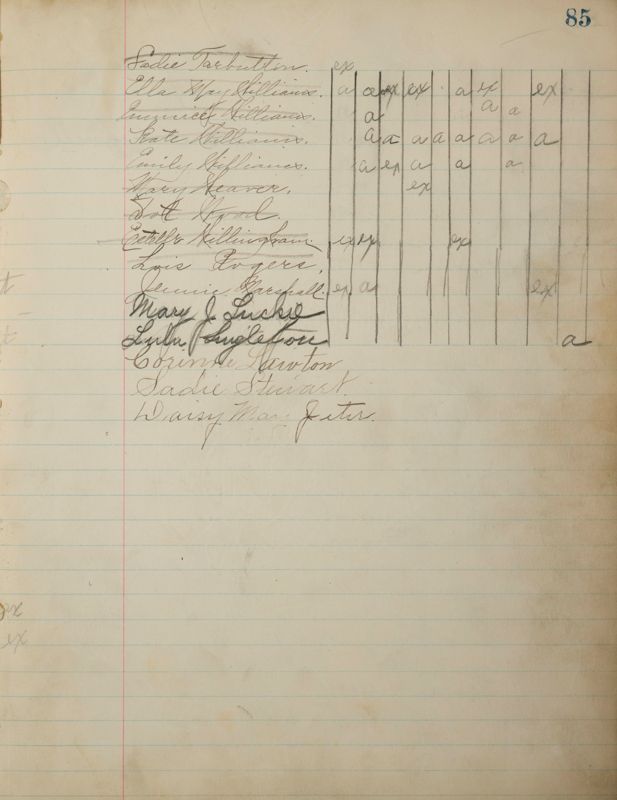 85
Sadie Tarbutton. ex
Ella May Williams. a a ex ex a ex ex
Eunice Williams. a a a
Kate Williams. a a a a a a a a
Emily Williams. a ex a a a
Mary Weaver. ex
Dot Wood
Estelle Willingham. ex ex ex
Lois Rogers.
Jennie Marshall. ex a ex
Mary J. Luckie
Lulu Singleton a
Corinne Lawton
Sadie Stewart.
Daisy May Jeter.
ex
ex